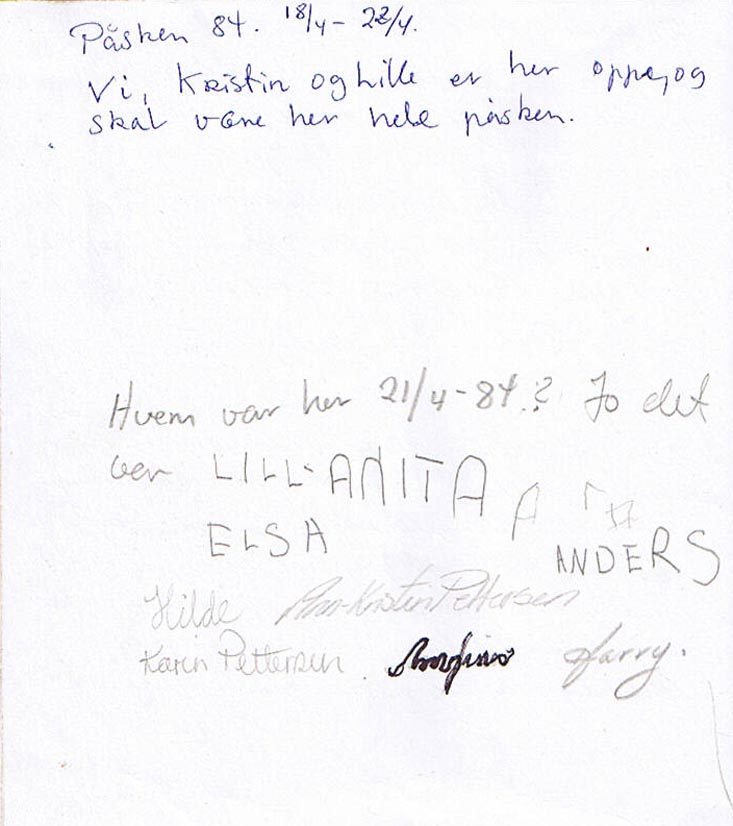 Påsken 84. 18/4 - 22/4.
Vi, Kristin og Lille er her oppe, og
skal være her hele påsken.
Hvem var her 21/4-84? Jo det
var LILL-ANITA
ELSA
ANDERS
Hilde Ann-Kristin Pettersen
Karin Pettersen Harry.